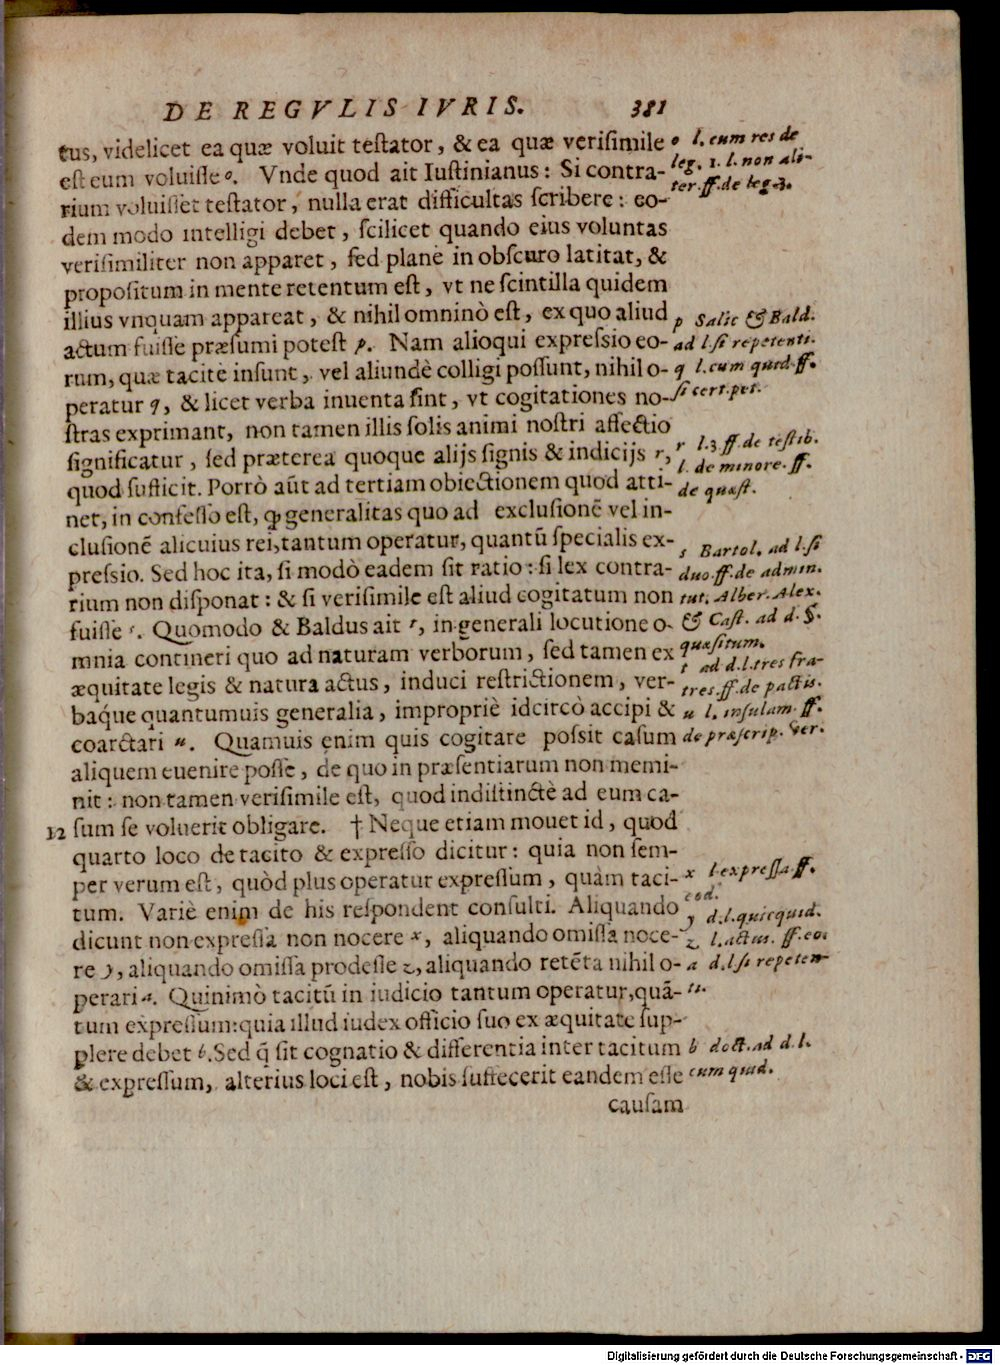 DE REGVLIS IVRIS. 381
tus, videlicet ea quæ voluit testator, & ea quæ verisimile
est eum voluisse o. Vnde quod ait Iustinianus: Si contra-
rium voluisset testator, nulla erat difficultas scribere: eo-
dem modo intelligi debet, scilicet quando eius voluntas
verisimiliter non apparet, sed planè in obscuro latitat, &
propositum in mente retentum est, vt ne scintilla quidem
illius vnquam appareat, & nihil omninò est, ex quo aliud
actum fuisse præsumi potest p. Nam alioqui expressio eo-
rum, quæ tacitè insunt, vel aliundè colligi possunt, nihil o-
peratur q, & licet verba inuenta sint, vt cogitationes no-
stras exprimant, non tamen illis solis animi nostri affectio
significatur, sed præterea quoque alijs signis & indicijs r,
quod sufficit. Porrò aũt ad tertiam obiectionem quod atti-
net, in confesso est, ꝙ generalitas quo ad exclusionẽ vel in-
clusionẽ alicuius rei, tantum operatur, quantũ specialis ex-
pressio. Sed hoc ita, si modò eadem sit ratio: si lex contra-
rium non disponat: & si verisimile est aliud cogitatum non
fuisse s. Quomodo & Baldus ait t, in generali locutione o-
mnia contineri quo ad naturam verborum, sed tamen ex
æquitate legis & natura actus, induci restrictionem, ver-
baq́ue quantumuis generalia, impropriè idcircò accipi &
coarctari u. Quamuis enim quis cogitare possit casum
aliquem euenire posse, de quo in præsentiarum non memi-
nit: non tamen verisimile est, quod indistinctè ad eum ca-
12 sum se voluerit obligare. † Neque etiam mouet id, quod
quarto loco de tacito & expresso dicitur: quia non sem-
per verum est, quòd plus operatur expressum, quàm taci-
tum. Variè enim de his respondent consulti. Aliquando
dicunt non expressa non nocere x, aliquando omissa noce-
re y, aliquando omissa prodesse z, aliquando retẽta nihil o-
perari a. Quinimò tacitũ in iudicio tantum operatur, quã-
tum expressum: quia illud iudex officio suo ex æquitate sup-
plere debet b. Sed q̃ sit cognatio & differentia inter tacitum
& expressum, alterius loci est, nobis suffecerit eandem esse
causam
o l. cum res de
leg. 1. l. non ali-
ter. ff. de leg. 3.
p Salic & Bald.
ad l. si repetenti.
q l. cum quid. ff.
si cert. pet.
r l. 3 ff. de testib.
l. de minore. ff.
de quæst.
s Bartol. ad l. si
duo. ff. de admin.
tut. Alber. Alex.
& Cast. ad d. §.
quæsitum.
t ad d. l. tres fra-
tres. ff. de pactis.
u l. insulam. ff.
de præscrip. ver.
x l. expressa. ff.
eod.
y d. l. quicquid.
z l. actus. ff. eo.
a d. l. si repeten-
ti.
b doct. ad d. l.
cum quid.
Digitalisierung gefördert durch die Deutsche Forschungsgemeinschaft - DFG